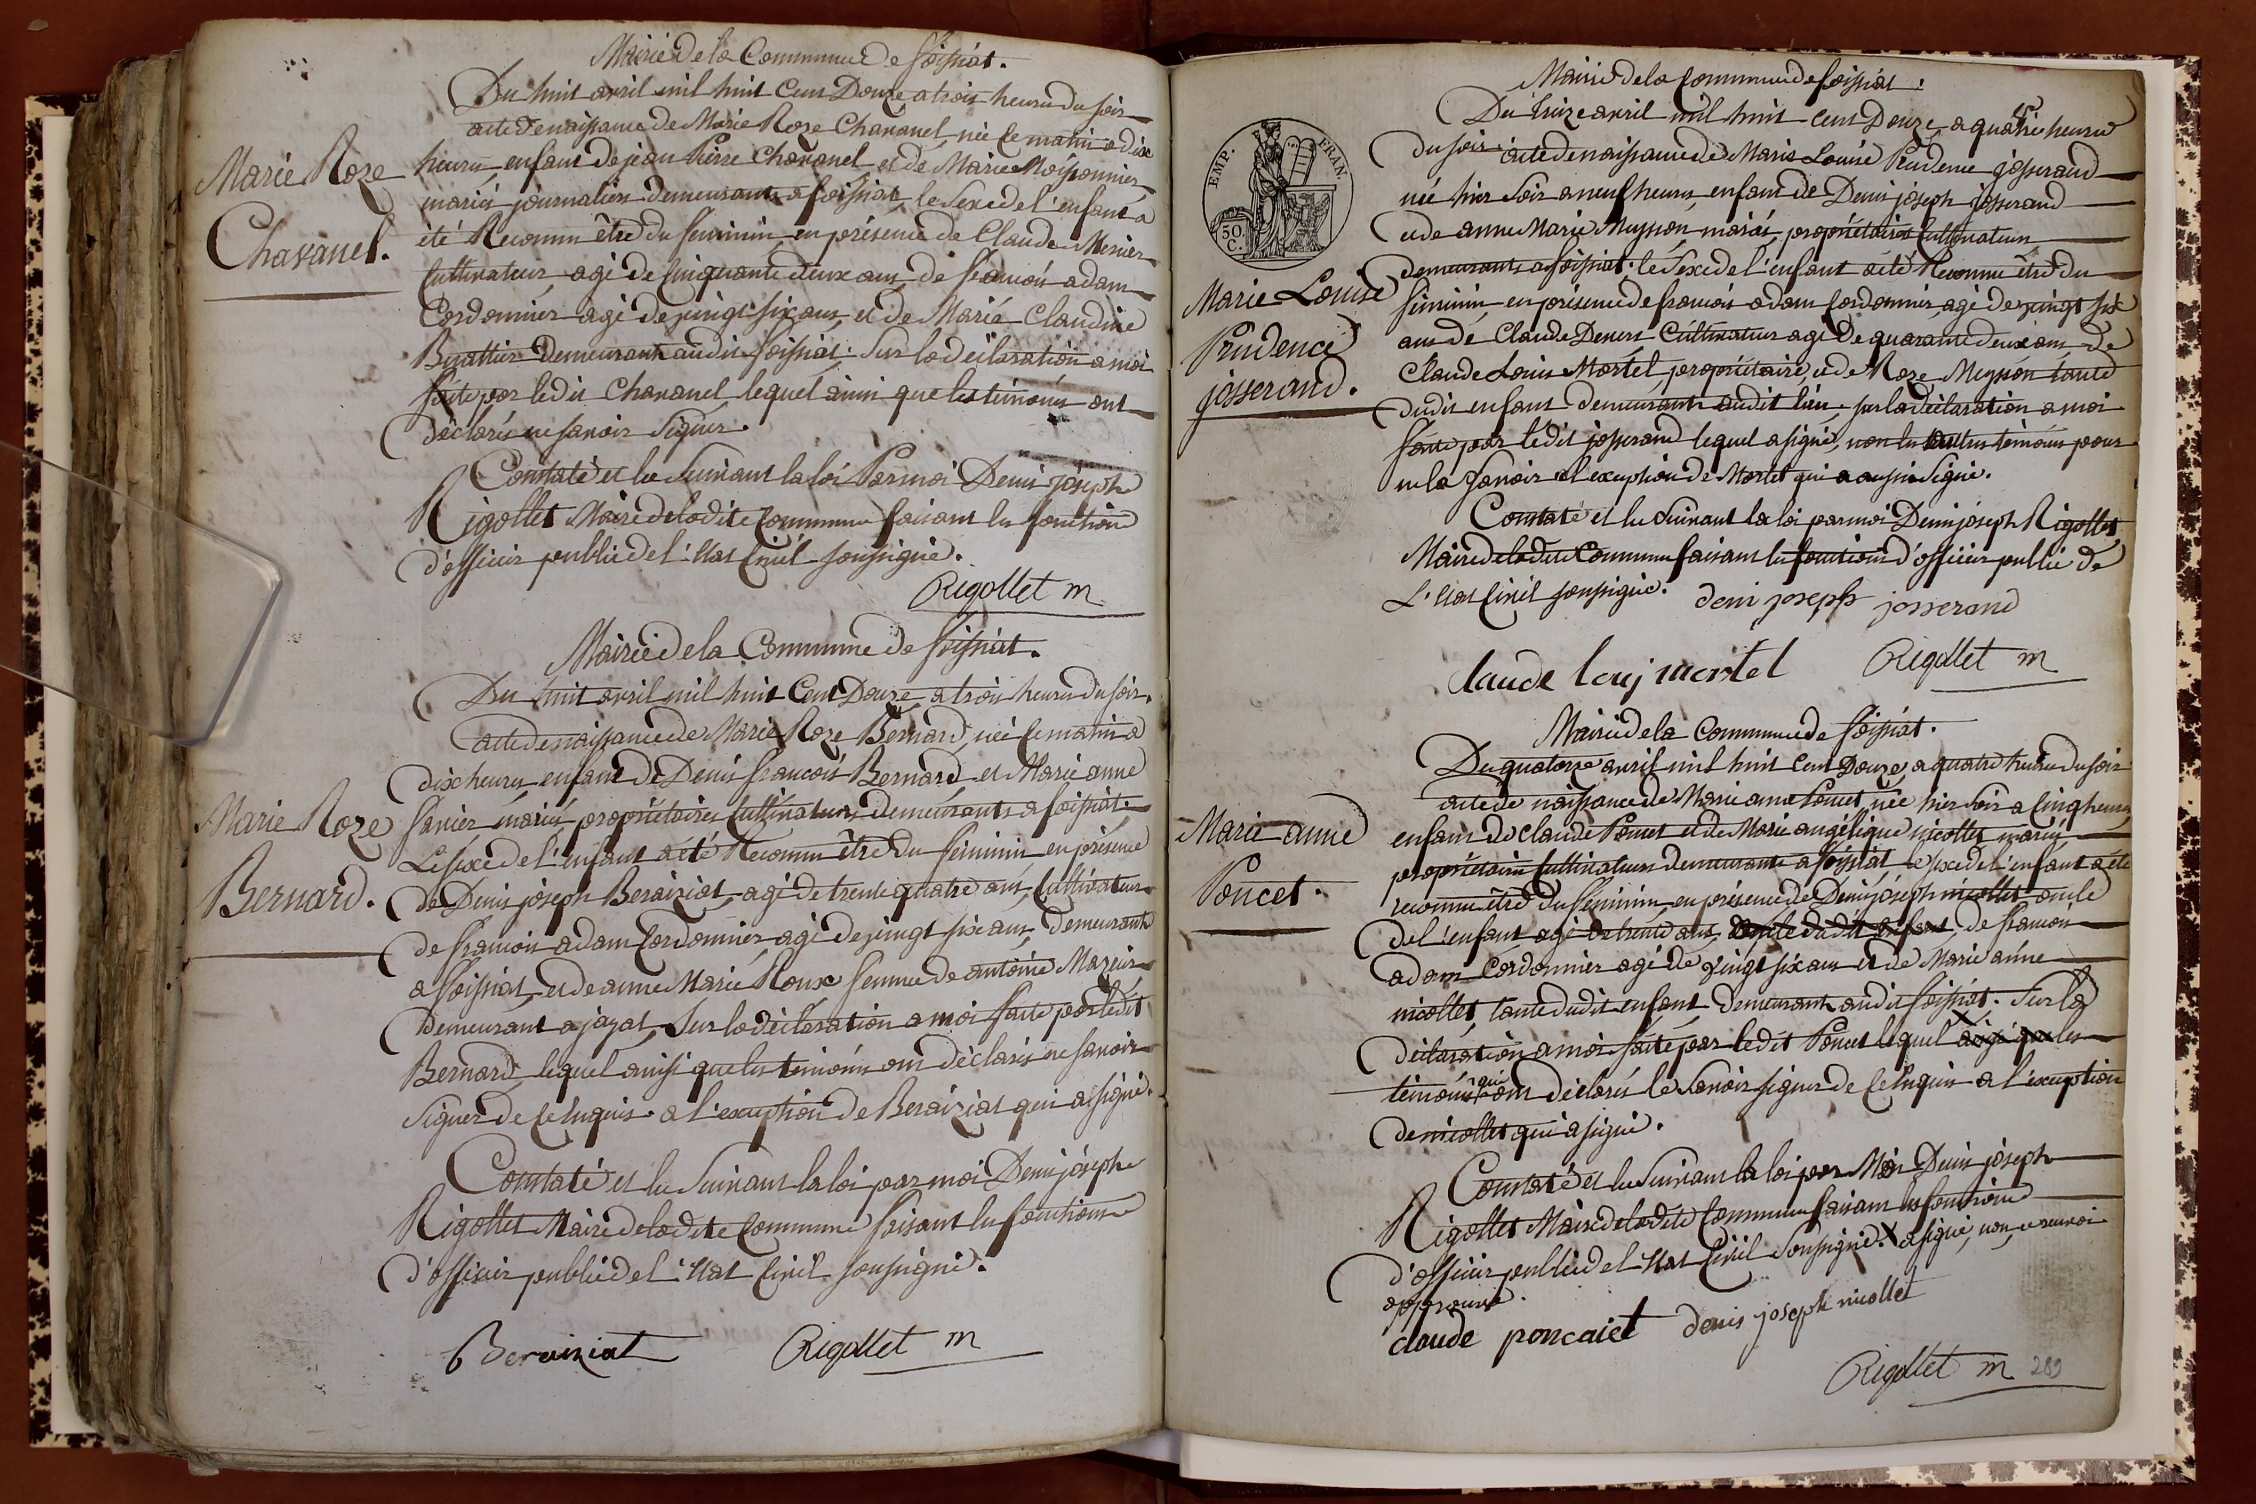 Mairie de la Commune de foissiat.
Du huit avril mil huit Cent Douze a trois heures du soir
acte de naissance de Marie Roze Chavanel, née Ce matin a dix
Marie Roze
Chavanel.
heures, enfant de jean Pierre Chavanel et de Marie Moissonnier
mariés journaliers demeurants a foissiat, le Sexe de l'enfant a
été Reconnu être du feminin, en présence de Claude Merier
Cultivateur, agé de Cinquante deux ans, de francois adam
Cordonnier agé de vingt six ans, et de Marie Claudine
Buattier Demeurant audit foissiat. Sur la déclaration a moi
faite par ledit Chavanel lequel ainsi que les témoins ont
déclarés ne savoir Signer.
Constaté et lu Suivant la loi Par moi Denis joseph
Rigollet Maire de ladite Commune faisant les fonctions
d'officier public de l'Etat Civil soussigné.
Rigollet m
Mairie de la Commune de foissiat.
Du huit avril mil huit Cent Douze, a trois heures du soir.
acte de naissance de Marie Roze Bernard, née Ce matin a
dix heures, enfant de Denis francois Bernard et Marie anne
Marie Roze
Bernard.
favier mariés, propriétaires Cultivateurs demeurants a foissiat.
Le sexe de l'enfant a été Reconnu être du feminin, en présence
de Denis joseph Beraiziat, agé de trente quatre ans, Cultivateur
de francois adam Cordonnier, agé de vingt six ans, Demeurants
a foissiat, et de anne Marie Roux femme de antoine Mazuir
Demeurant a jayat, Sur la déclaration a moi faite par ledit
Bernard, lequel ainsi que les témoins ont déclarés ne savoir
Signer de Ce Enquis. a l'exception de Beraiziat qui a signé.
Constaté et lu Suivant la loi par moi Denis joseph
Rigollet Maire de ladite Commune faisant les fonctions
d'officier public de l'Etat Civil soussigné.
Beraiziat Rigollet m
Mairie de la Commune de foissiat.
Du treize avril mil huit Cent Douze, a quatre heures
du soir. acte de naissance de Marie Louise Prudence josserand
EMP. FRAN.
50.
C.
née hier Soir a neuf heures, enfant de Denis joseph josserand
et de anne Marie Meysson, mariés, propriétaires Cultivateurs
Demeurants a foissiat. le Sexe de l'enfant a été Reconnu être du
Marie Louise
Prudence
josserand.
feminin, en présence de francois adam Cordonnier, agé de vingt six
ans de Claude Denis Cultivateur agé De quarante deux ans, de
Claude Louis Mortel, propriétaire, et de Roze Meysson tante
dudit enfant demeurants audit lieu. sur la déclaration a moi
faite par ledit josserand lequel a signé, non les autres témoins pour
ne le savoir a l'exception de Mortel qui a aussi Signé.
Constaté et lu Suivant la loi par moi Denis joseph Rigollet
Maire de ladite Commune faisant les fonctions d'officier public de
L'Etat Civil soussigné. deni joseph josserand
Claude louj mortel Rigollet m
Mairie de la Commune de foissiat.
Du quatorze avril mil huit Cent Douze, a quatre heures du soir
acte de naissance de Marie anne Poncet, née hier Soir a Cinq heures
Marie anne
Poncet.
enfant de Claude Poncet et de Marie angélique nicollet, mariés
propriétaires Cultivateurs demeurants a foissiat, le Sexe de l'enfant a été
reconnu être du feminin, en présence de Denis joseph nicollet oncle
de l'enfant agé de trente ans, de francois
adam Cordonnier agé de vingt six ans et de Marie anne
nicollet, tante dudit enfant, Demeurants audit foissiat. Sur la
déclaration a moi faite par ledit Poncet lequel X ainsi que les
témoins qui ont déclarés le Savoir signer de Ce Enquis a l'exception
de nicollet qui a signé.
Constaté et lu Suivant la loi par Moi Denis joseph
Rigollet Maire de ladite Commune faisant les fonctions
d'officier public de l'Etat Civil Soussigné. X a signé, non, ce renvoi
approuvé.
claude poncaiet denis joseph nicollet
Rigollet m 289